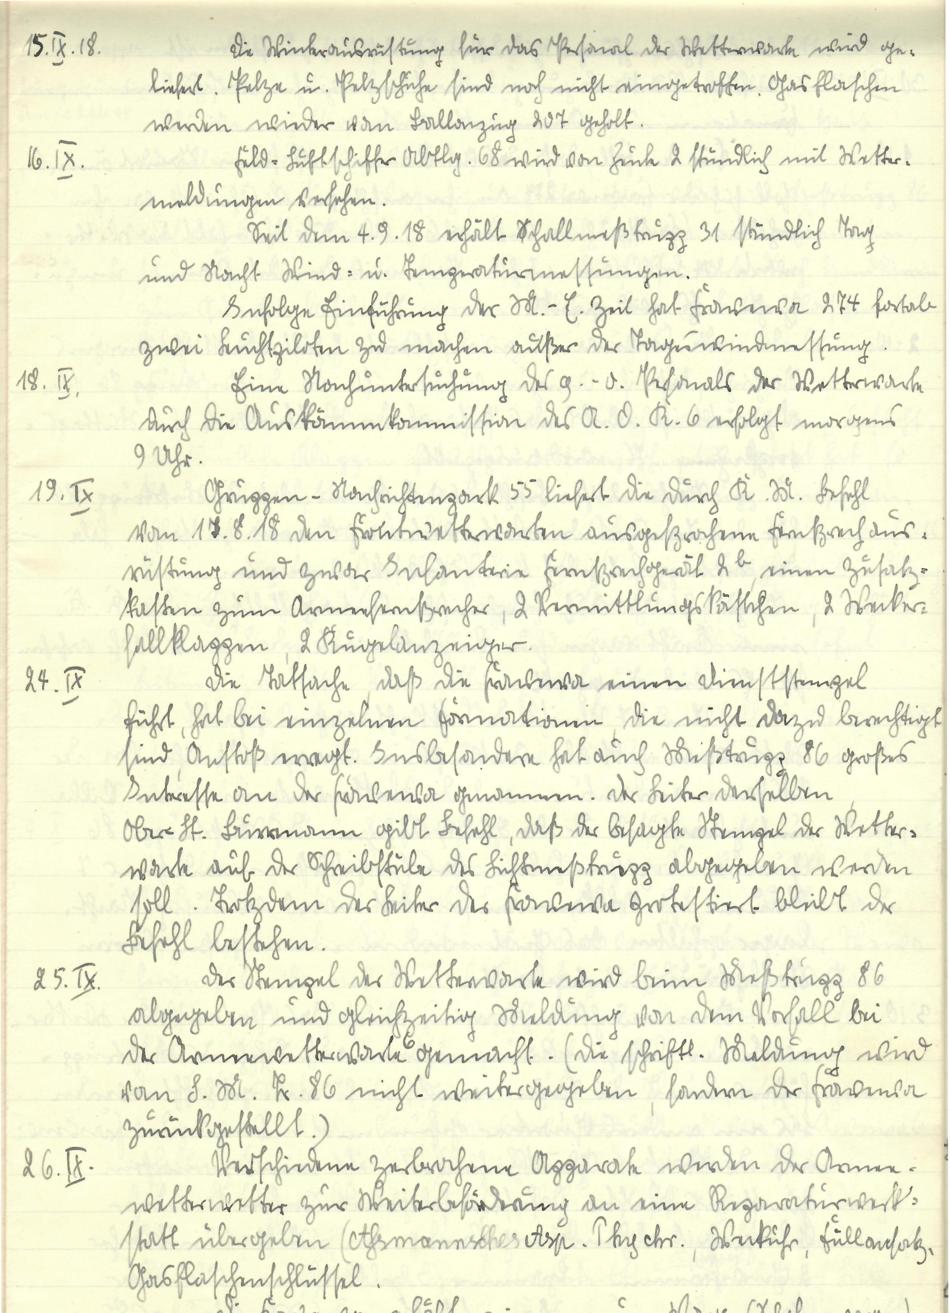 15.IX.18. Die Winterausrüstung für das Personal der Wetterwarte wird ge-
liefert. Pelze u. Pelzschuhe sind noch nicht eingetroffen. Gasflaschen
werden wieder von Ballonzug 207 geholt.
16.IX. Feld-Luftschiffer Abtlg. 68 wird von heute 2 stündlich mit Wetter-
meldungen versehen.
Seit dem 4.9.18 erhält Schallmeßtrupp 31 stündlich Tag
und Nacht Wind- u. Temperaturmessungen.
Infolge Einführung der M.-E. Zeit hat Frawewa 274 fortab
zwei Leuchtpiloten zu machen außer der Tageswindmessung.
18. IX. Eine Nachuntersuchung des g.-v. Personals der Wetterwarte
durch die Auskämmkommission des A.O.K. 6 erfolgt morgens
9 Uhr.
19. IX Gruppen-Nachrichtenpark 55 liefert die durch K.M. Befehl
vom 17.8.18 den Frontwetterwarten ausgesprochene Fernsprechaus-
rüstung und zwar Infanterie Fernsprechgerät 2b einen Zusatz-
kasten zum Armeefernsprecher, 2 Vermittlungskästchen, 2 Wecker-
fallklappen, 2 Kugelanzeiger.
24. IX Die Tatsache, daß die Frawewa einen Dienststempel
führt, hat bei einzelnen Formationen, die nicht dazu berechtigt
sind, Anstoß erregt. Insbesondere hat auch Meßtrupp 86 großes
Interesse an der Frawewa genommen. Der Leiter desselben,
Ober-Lt. Burmann gibt Befehl, daß der besagte Stempel der Wetter-
warte auf der Schreibstube des Lichtmeßtrupp abgegeben werden
soll. Trotzdem der Leiter der Frawewa protestiert bleibt der
Befehl bestehen.
25. IX. Der Stempel der Wetterwarte wird beim Meßtrupp 86
abgegeben und gleichzeitig Meldung von dem Vorfall bei
der Armeewetterwarte 6 gemacht. (Die schriftl. Meldung wird
von L.M.Tr. 86 nicht weitergegeben, sondern der Frawewa
zurückgestellt.)
26. IX. Verschiedene zerbrochene Apparate werden der Armee-
wetterwetter zur Weiterbeförderung an eine Reparaturwerk-
statt übergeben (Assmannsches Asp. Psychr., Weckuhr, Füllansatz,
Gasflaschenschlüssel.